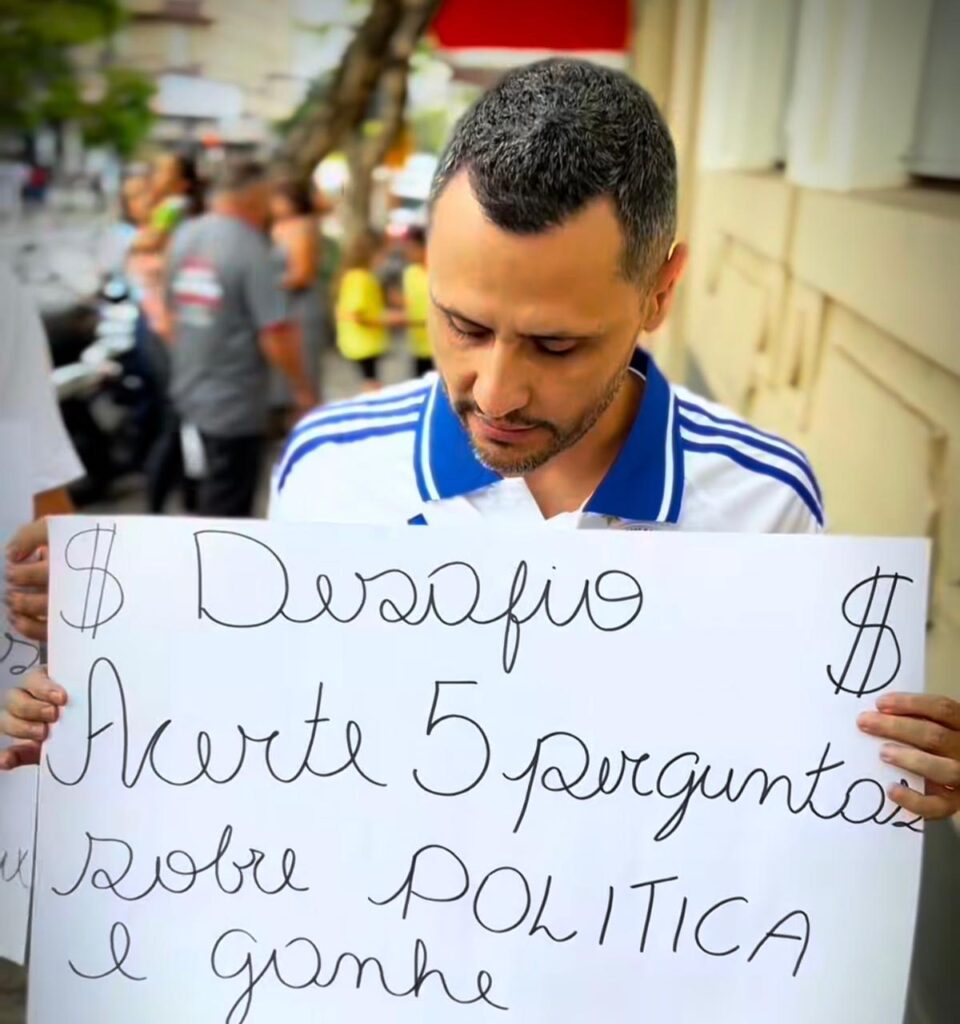 $ Desafio $
Acerte 5 perguntas
sobre POLITICA
e ganhe